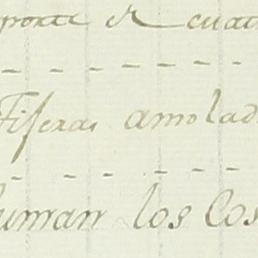 porte de cuat
Tiseras amolad
uman los Cos